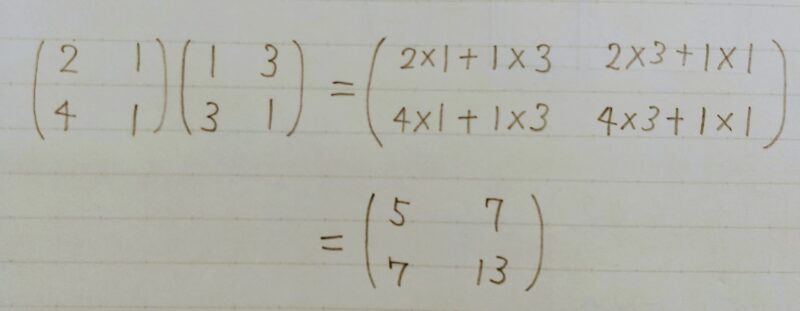 (2 1
4 1)(1 3
3 1) = (2×1+1×3 2×3+1×1
4×1+1×3 4×3+1×1)
= (5 7
7 13)